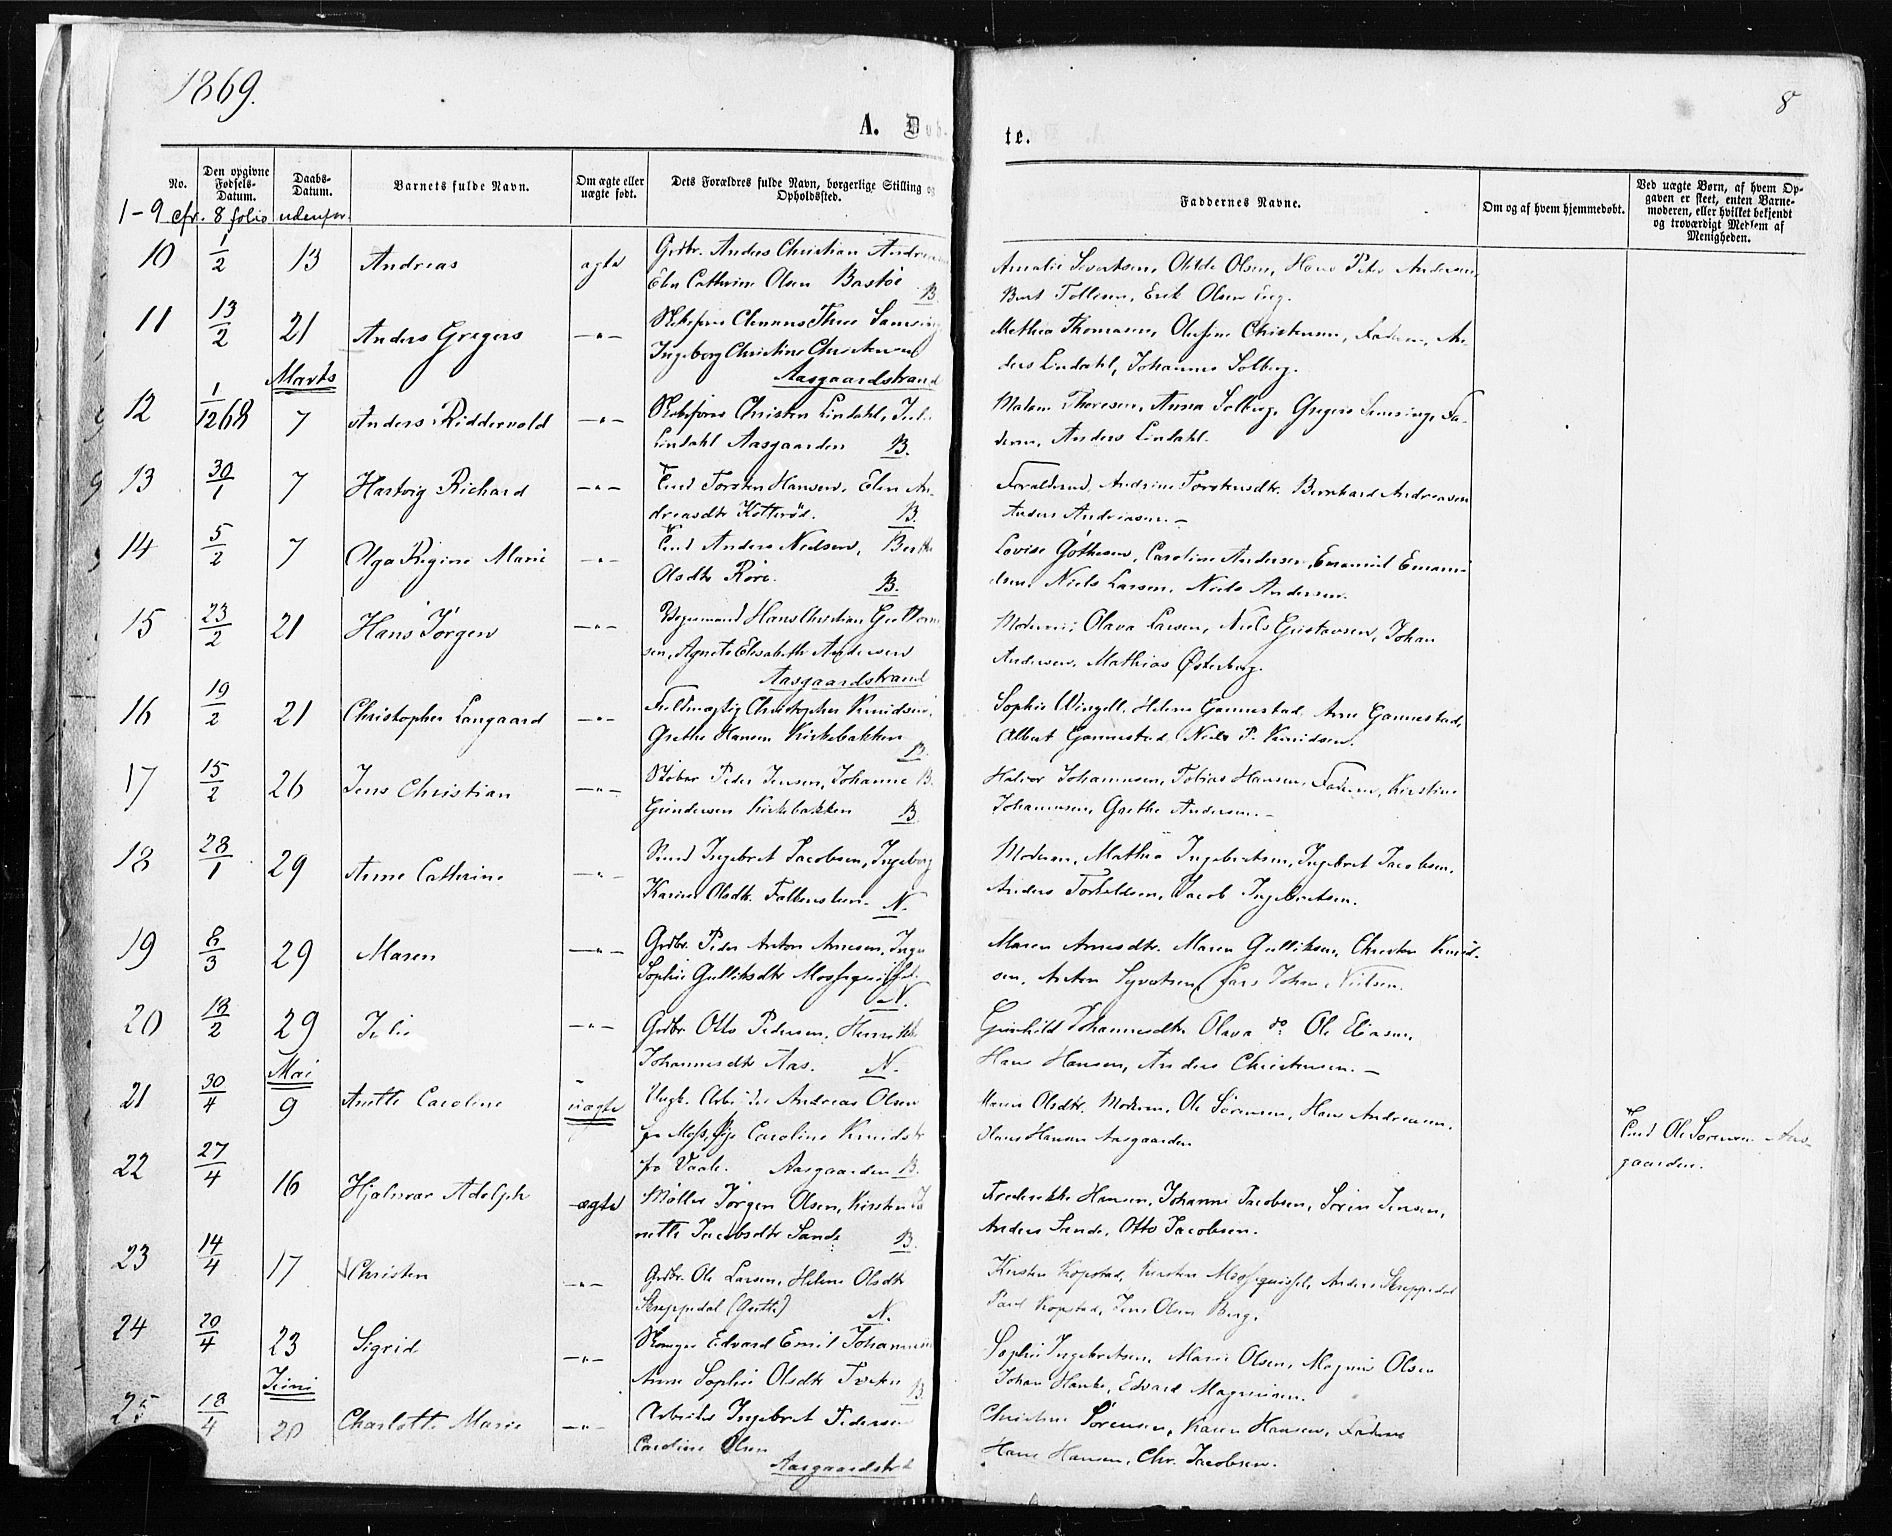 1869.
8
A. Døb-
te.
No.
Den opgivne Fødsels-Datum.
Daabs-Datum.
Barnets fulde Navn.
Om ægte eller uægte født.
Dets Forældres fulde Navn, borgerlige Stilling og Opholdssted.
Faddernes Navne.
Om og af hvem hjemmedøbt.
Ved uægte Børn, af hvem Opgaven er skeet, enten Barnemoderen, eller hvilket bekjendt og troværdigt Medlem af Menigheden.
1-9 cfr. 8 folio udenfor.
10 1/2 13 Andreas ægte Grdbr. Anders Christian
Elen Cathrine Olsen Bastøe B.
Amalie Sivertsen, Olsen, Hans Peter Andersen,
Bent Tollesen, Erik Olsen Eeg.
11 13/2 21 Anders Gregers —"—
Ingeborg Christine Christensen
Aasgaardstrand
Mathea Thomasen, Olufine Christensen, Faderen, An-
ders Lindahl, Johannes Solberg.
Marts
12 1/12 68 7 Anders Riddervold —"— Christen Lindahl,
Lindahl Aasgaarden B.
Madam Thoresen, Anna Solberg, Gregers Fa-
deren, Anders Lindahl.
13 30/1 7 Hartvig Richard —"— Torsten Hansen, Elen An-
dreasdtr Kotterød. B.
Forældrene, Andrine Torstensdtr. Bernhard Andreasen
Anders Andreasen. —
14 5/2 7 Olga Regine Marie —"— Anders Nielsen, Berthe
Olsdtr Røre. B.
Lovise Gøthesen, Caroline Andersen, Emanuel Emanu-
elsen, Niels Larsen, Niels Andersen.
15 23/2 21 Hans Jørgen —"— Hans Christian Guttorm-
sen, Agnete Elisabeth Andersen
Aasgaardstrand
Moderen, Olava Larsen, Niels Gustavsen, Johan
Andersen, Mathias Østerberg.
16 19/2 21 Christopher Langaard —"— Fuldmægtig Christopher Knudsen,
Grethe Hansen Kirkebakken B.
Sophie Wingell, Helene Gannestad, Arne Gannestad,
Albert Gannestad, Niels P. Knudsen.
17 15/2 26 Jens Christian —"— Støber Peder Jensen, Johanne B.
Gundersen Kirkebakken B.
Halvor Johannesen, Tobias Hansen, Faderen, Kirstine
Johannesen, Grethe Andersen. —
18 28/1 29 Anne Cathrine —"— Ingebret Jacobsen, Ingeborg
Karine Olsdtr. Falkensteen. N.
Moderen, Mathea Ingebretsen, Ingebret Jacobsen,
Anders Torkeldsen, Jacob Ingebretsen.
19 8/3 29 Maren —"— Grdbr. Peder Anton Arnesen, Inge
Sophie Gulliksdtr N.
Maren Arnesdtr. Maren Gulliksen, Christen Knud-
sen, Anton Syvertsen, Lars Johan Nielsen.
20 18/2 29 Julie —"— Grdbr. Otto Pedersen, Henrikke
Johannesdtr Aas. N.
Gunhild Johannesdtr Olava do Ole Eliasen,
Hans Hansen, Anders Christensen. —
Mai
21 30/4 9 Anette Caroline uægte Ungk. Arbeider Andreas Olsen
fra Moss, Pige Caroline Knudsdtr
fra Vaale. Aasgaarden B.
Maren Olsdtr. Moderen, Ole Sørensen, Hans Andreasen,
Hans Hansen Aasgaarden
Ole Sørensen Aas-
gaarden.
22 27/4 16 Hjalmar Adolph ægte Møller Jørgen Olsen, Kirsten
Jacobsdtr Sande B.
Frederikke Hansen, Johanne Jacobsen, Søren Jensen,
Anders Sande, Otto Jacobsen.
23 14/4 17 Christen —"— Grdbr. Ole Larsen, Helene Olsdtr
Skreppedal (Grette) N.
Kirsten Kopstad, Kirsten Anders Skreppedal
Paul Kopstad, Jens Olsen Berg.
24 20/4 23 Sigrid —"— Edvard Emil Johannesen
Anne Sophie Olsdtr B.
Sophie Ingebretsen, Marie Olsen, Magnus Olsen
Johan Edvard Magnusen.
Juni
25 18/4 20 Charlotte Marie —"— Arbeider Ingebret Pedersen
Caroline Olsen
Aasgaardstrd
Christine Sørensen, Karen Hansen, Faderen
Hans Hansen, Chr. Jacobsen.